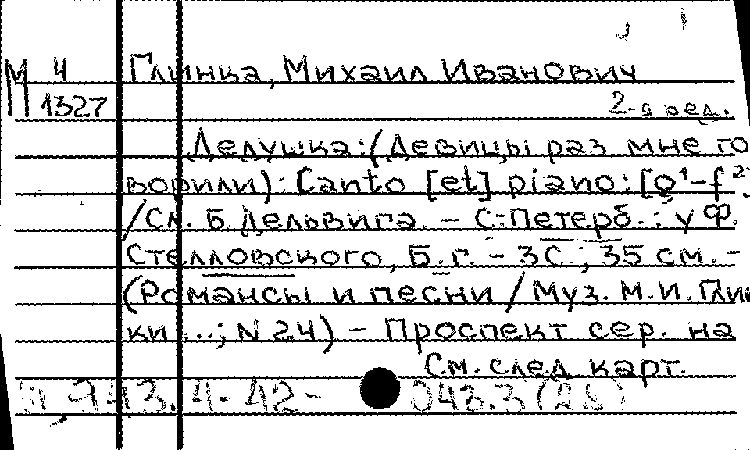 М 4 Глинка, Михаил Иванович
1327 2-я ред.
Дедушка: (Девицы раз мне го
ворили): Canto [et] piano: [g¹-f²].
/Сл. Б. Дельвига. - С.-Петерб.: у Ф.
Стелловского, Б.г. - 3С.; 35 см. -
(Романсы и песни / Муз. М.И. Глин
ки ...; N 24) - Проспект сер. на
См. след. карт.